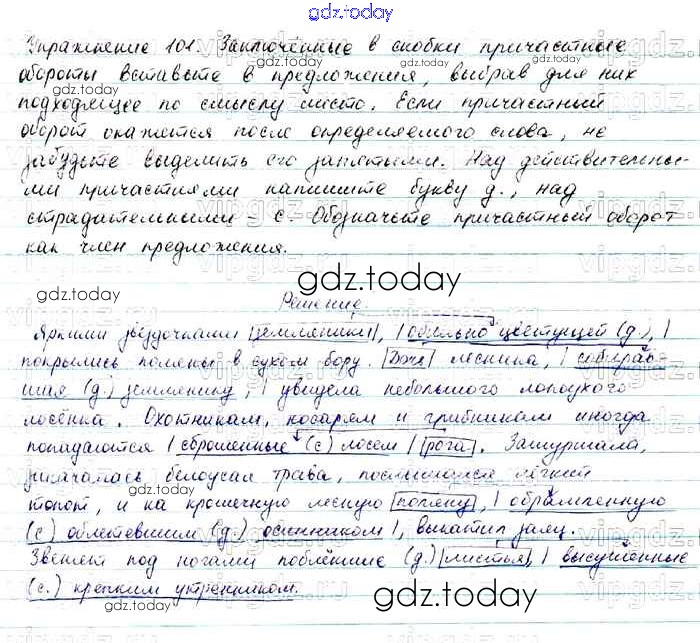 gdz.today
Упражнение 101. Заключённые в скобки причастные
обороты вставьте в предложения, выбрав для них
подходящее по смыслу место. Если причастный
оборот окажется после определяемого слова, не
забудьте выделить его запятыми. Над действительны-
ми причастиями напишите букву д., над
страдательными - с. Обозначьте причастный оборот
как член предложения.
gdz.today
gdz.today
gdz.today
Решение.
Яркими звёздочками земляники, обильно цветущей (д.),
покрылись поляны в сухом бору. Дочь лесника, собирав-
шая (д.) землянику, увидела небольшого лопоухого
лосёнка. Охотникам, косарям и грибникам иногда
попадаются сброшенные (с) лосем рога. Зашуршала,
закачалась белоусая трава, послышался лёгкий
gdz.today
топот, и на крошечную лесную поляну, обрамленную
(с) облетевшим (д.) осинником, выкатил заяц.
Звенят под ногами поблёкшие (д.) листья, высушенные
(с.) крепким утренником.
gdz.today
gdz.today